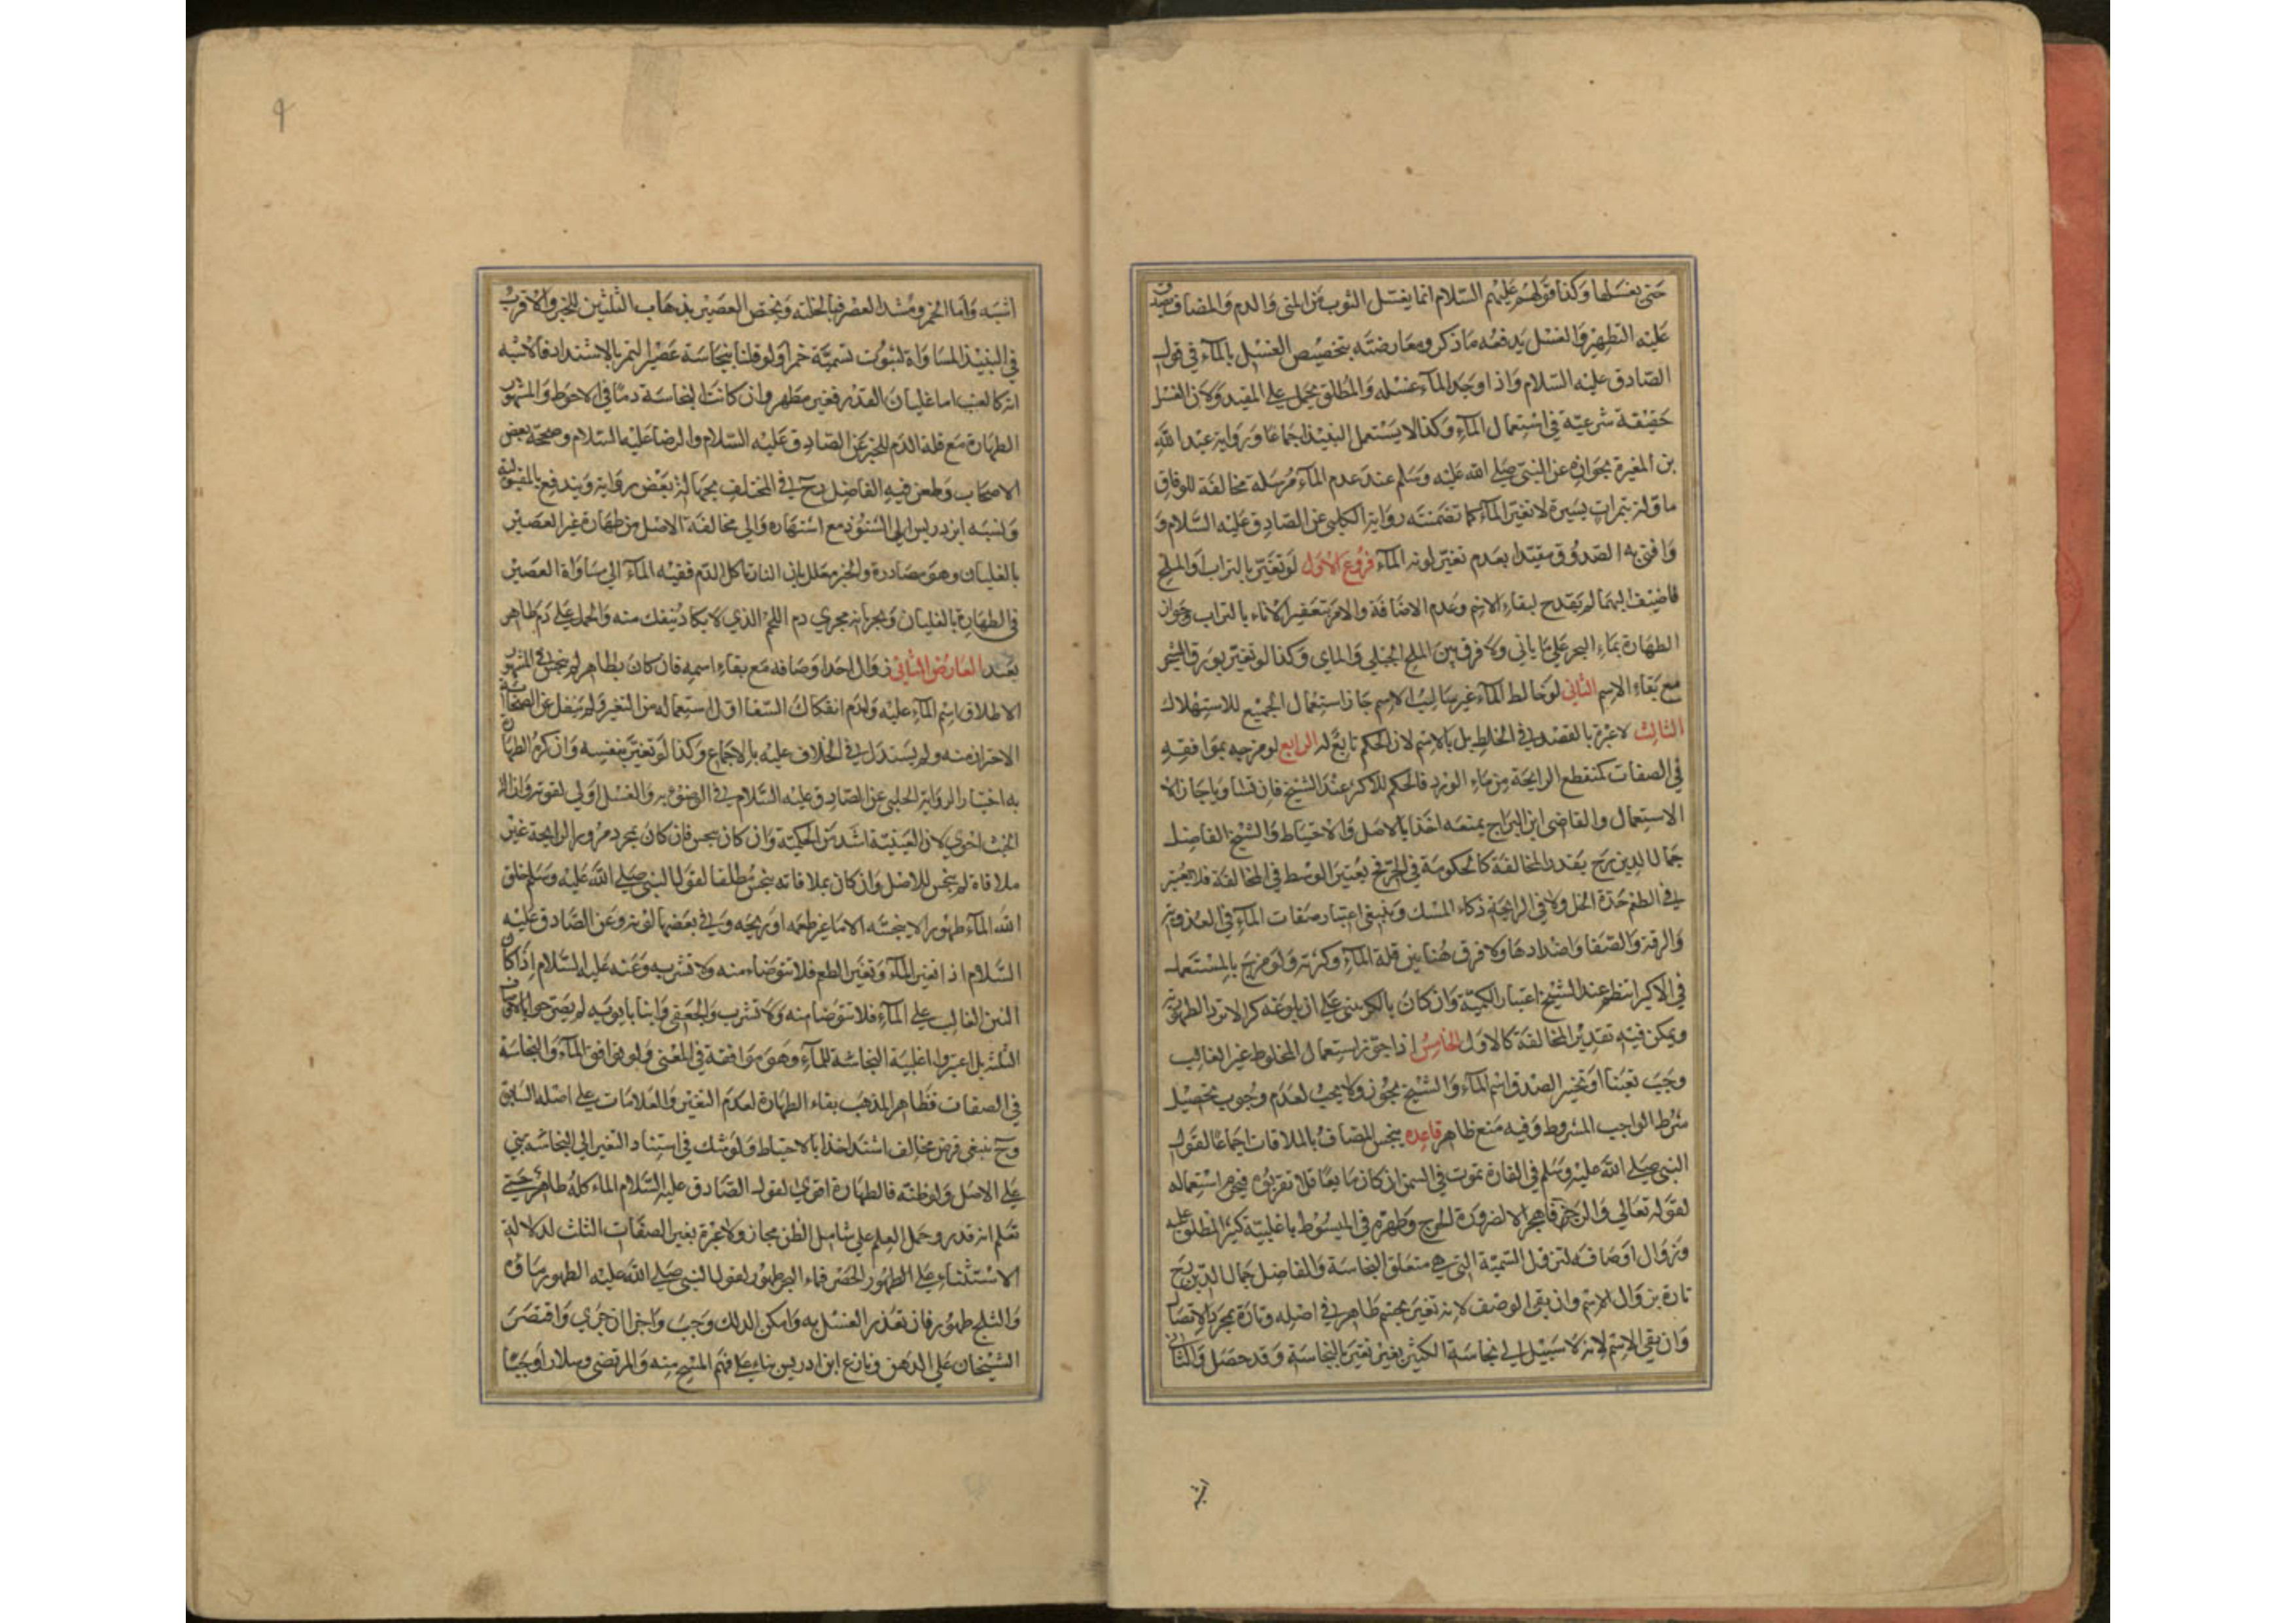 حتى يغسلها وكذا قولهم عليهم السلام انما يغسل الثوب من المنى والدم والمضاف يصدق
عليه التطهير والغسل يدفعه ما ذكر ومعارضته بتخصيص الغسل بالمآء في قول
الصادق عليه السلام واذا وجد المآء غسله والمطلق يحمل على المقيد ولان الغسل
حقيقة شرعية في استعمال المآء وكذا لا يستعمل النبيذ اجماعا ورواية عبد الله
بن المغيرة بجوازه عن النبي صلى الله عليه وسلم عند عدم المآء مرسلة مخالفة للوفاق
ماولة بتمرات يسيرة لا تغير المآء كما تضمنته رواية الكلبى عن الصادق عليه السلام و
وافتى به الصدوق مقيدا بعدم تغير لونه المآء فروع الاول لو تغير بالتراب او الملح
فاضيف اليهما لم يقدح لبقاء الاسم وعدم الاضافة والامر بتعفير الاناء بالتراب وجواز
الطهارة بماء البحر على ما ياتي ولا فرق بين الملح الجبلى والمايى وكذا لو تغير بورق الشجر
مع بقاء الاسم الثانى لو خالط المآء غير سالب الاسم جاز استعمال الجميع للاستهلاك
الثالث لا عبرة بالقصد في الخلط بل بالاسم لان الحكم تابع له الرابع لو مزجه بموافقه
في الصفات كمنقطع الرايحة من ماء الورد فالحكم للاكثر عند الشيخ فان تساويا جاز الا
الاستعمال والقاضى ابن البراج يمنعه اخذا بالاصل والاحتياط والشيخ الفاضل
جمال الدين رح يقدر المخالفة كالحكومة في الحر فح يعتبر الوسط في المخالفة فلا يعتبر
في الطعم حدة الخل ولا في الرايحة ذكاء المسك وينبغى اعتبار صفات المآء في العذوبة
والرقة والصفا واضدادها ولا فرق هنا بين قلة المآء وكثرته ولو مزج بالمستعمل
في الاكبر استظهر عند الشيخ اعتبار الكمية وان كان بالكر بنى على ان بلوغه كرا لا تزيد الطهورية
ويمكن فيه تقدير المخالفة كالاول الخامس اذا جوز استعمال المخلوط غير الغالب
وجب تعينا او تخير الصدق اسم المآء والشيخ يجوز ولا يجب لعدم وجوب تحصيل
شرط الواجب المشروط وفيه منع ظاهر قاعده ينجس المضاف بالملاقات اجماعا لقول
النبي صلى الله عليه وسلم في الفارة تموت في السمن ان كان مايعا فلا تقربوه فيحرم استعماله
لقوله تعالى والرجز فاهجر الا لضرورة الحرج وطهره في المبسوط باغلبية كثير المطلق عليه
وزوال اوصافه لتزول التسمية التى هي متعلق النجاسة والفاضل جمال الدين رح
تارة بزوال الاسم وان بقى الوصف لانه تغير بجسم طاهر في اصله وتارة بمجرد الاتصال
وان بقى الاسم لانه لا سبيل الى نجاسة الكثير بغير تغير بالنجاسة وقد حصل والثانى
اشبه واما الخمر ومشتد العصر فبالخلية ويختص العصير بذهاب الثلثين للخبر والاقرب
في النبيذ المساواة لثبوت تسمية خمرا ولو قلنا بنجاسة عصير التمر بالاشتداد فالاشبه
انه كالعنب اما غليان القدر فغير مطهر وان كانت النجاسة دما في الاحوط والمشهور
الطهارة مع قلة الدم للخبر عن الصادق عليه السلام والرضا عليه السلام وصححه بعض
الاصحاب وطعن فيه الفاضل رح في المختلف بجهالة بعض رواية ويندفع بالمقبولية
ونسبه ابن دريس الى الشذوذ مع اشتهاره والى مخالفة الاصل من طهارة غير العصير
بالغليان وهو مصادرة والخبر معلل بان النار تاكل الدم ففيه المآء الى مساواة العصير
في الطهارة بالغليان ويجرانه مجرى دم اللحم الذي لا يكاد ينفك منه والحمل على دم طاهر
بعيد العارض الثانى زوال احد اوصافه مع بقاء اسمه فان كان بطاهر لم ينجس في المشهور
الاطلاق اسم المآء عليه ولعدم انفكاك السقا اول استعماله من التغير ولم ينقل عن الصحابة
الاحتراز منه ولم يستدل في الخلاف عليه بالاجماع وكذا لو تغير بنفسه وان كره الطهارة
به اختيارا لرواية الحلبى عن الصادق عليه السلام في الوضوء به والغسل اولى لقوته وازالة
الخبث احرى لان العينية اشد من الحكمية وان كان بنجس فان كان بمجرد مرور الرايحة غير
ملاقاة لم ينجس للاصل وان كان بملاقاته ينجس مطلقا لقول النبي صلى الله عليه وسلم خلق
الله المآء طهورا لا ينجسه الا ما غير طعمه او ريحه وفي بعضها لونه وعن الصادق عليه
السلام اذا تغير المآء وتغير الطعم فلا تتوضاء منه ولا تشرب وعنه عليه السلام اذا كان
النتن الغالب على المآء فلا تتوضا منه ولا تشرب والجعفى وابنا بابويه لم يصرحوا بالاوصاف
الثلثة بل اعتبروا اغلبية النجاسة للمآء وهو موافقة في المعنى ولو توافق المآء والنجاسة
في الصفات فظاهر المذهب بقاء الطهارة لعدم التغير والعلامات على اصله السابق
وح ينبغى فرض مخالف اشد اخذا بالاحتياط ولو شك في استناد التغير الى النجاسة بنى
على الاصل ولو ظنه فالطهارة اقوى لقول الصادق عليه السلام الماء كله طاهر حتى
تعلم انه قذر وحمل العلم على شامل الظن مجاز ولا عبرة بغير الصفات الثلث لدلالة
الاستثناء على الطهور الحصر فماء البحر طهور لقول النبي صلى الله عليه الطهور ماؤه
والثلج طهور فان تعذر الغسل به وامكن الدلك وجب واجزا ان جرى واقتصر
الشيخان على الدهن ونازع ابن ادريس بناء على فهم المسح منه والمرتضى وسلار اوجبا